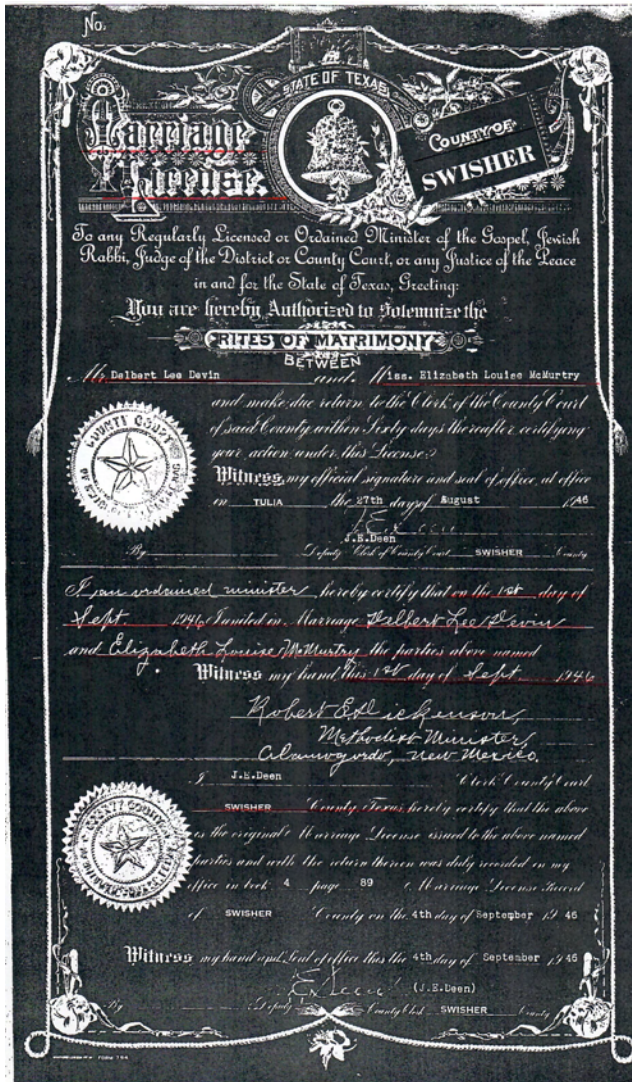 No.
STATE OF TEXAS
Marriage
License.
COUNTY OF
SWISHER
To any Regularly Licensed or Ordained Minister of the Gospel, Jewish
Rabbi, Judge of the District or County Court, or any Justice of the Peace
in and for the State of Texas, Greeting:
You are hereby Authorized to Solemnize the
RITES OF MATRIMONY
BETWEEN
Mr Delbert Lee Devin and Miss. Elizabeth Louise McMurtry
and make due return to the Clerk of the County Court
of said County within Sixty days thereafter certifying
your action under this License.
COUNTY COURT
Witness my official signature and seal of office, at office
in TULIA the 27th days of August 1946
J.E.Deen
J.E.Deen
By Deputy Clerk of County Court SWISHER County
I, an ordained minister hereby certify that on the 1st day of
Sept 1946 I united in Marriage Delbert Lee Devin
and Elizabeth Louise McMurtry the parties above named
Witness my hand this 1st day of Sept 1946
Robert E. Dickenson,
Methodist Minister,
Alamogordo, New Mexico.
I J.E.Deen Clerk County Court
SWISHER County Texas hereby certify that the above
is the original Marriage License issued to the above named
parties and with the return thereon was duly recorded in my
office in book 4 page 89 Marriage License Record
of SWISHER County on the 4th day of September 19 46
Witness my hand and Seal of office this the 4th day of September 19 46
(J.E.Deen)
By Deputy County Clerk SWISHER County
FORM 784